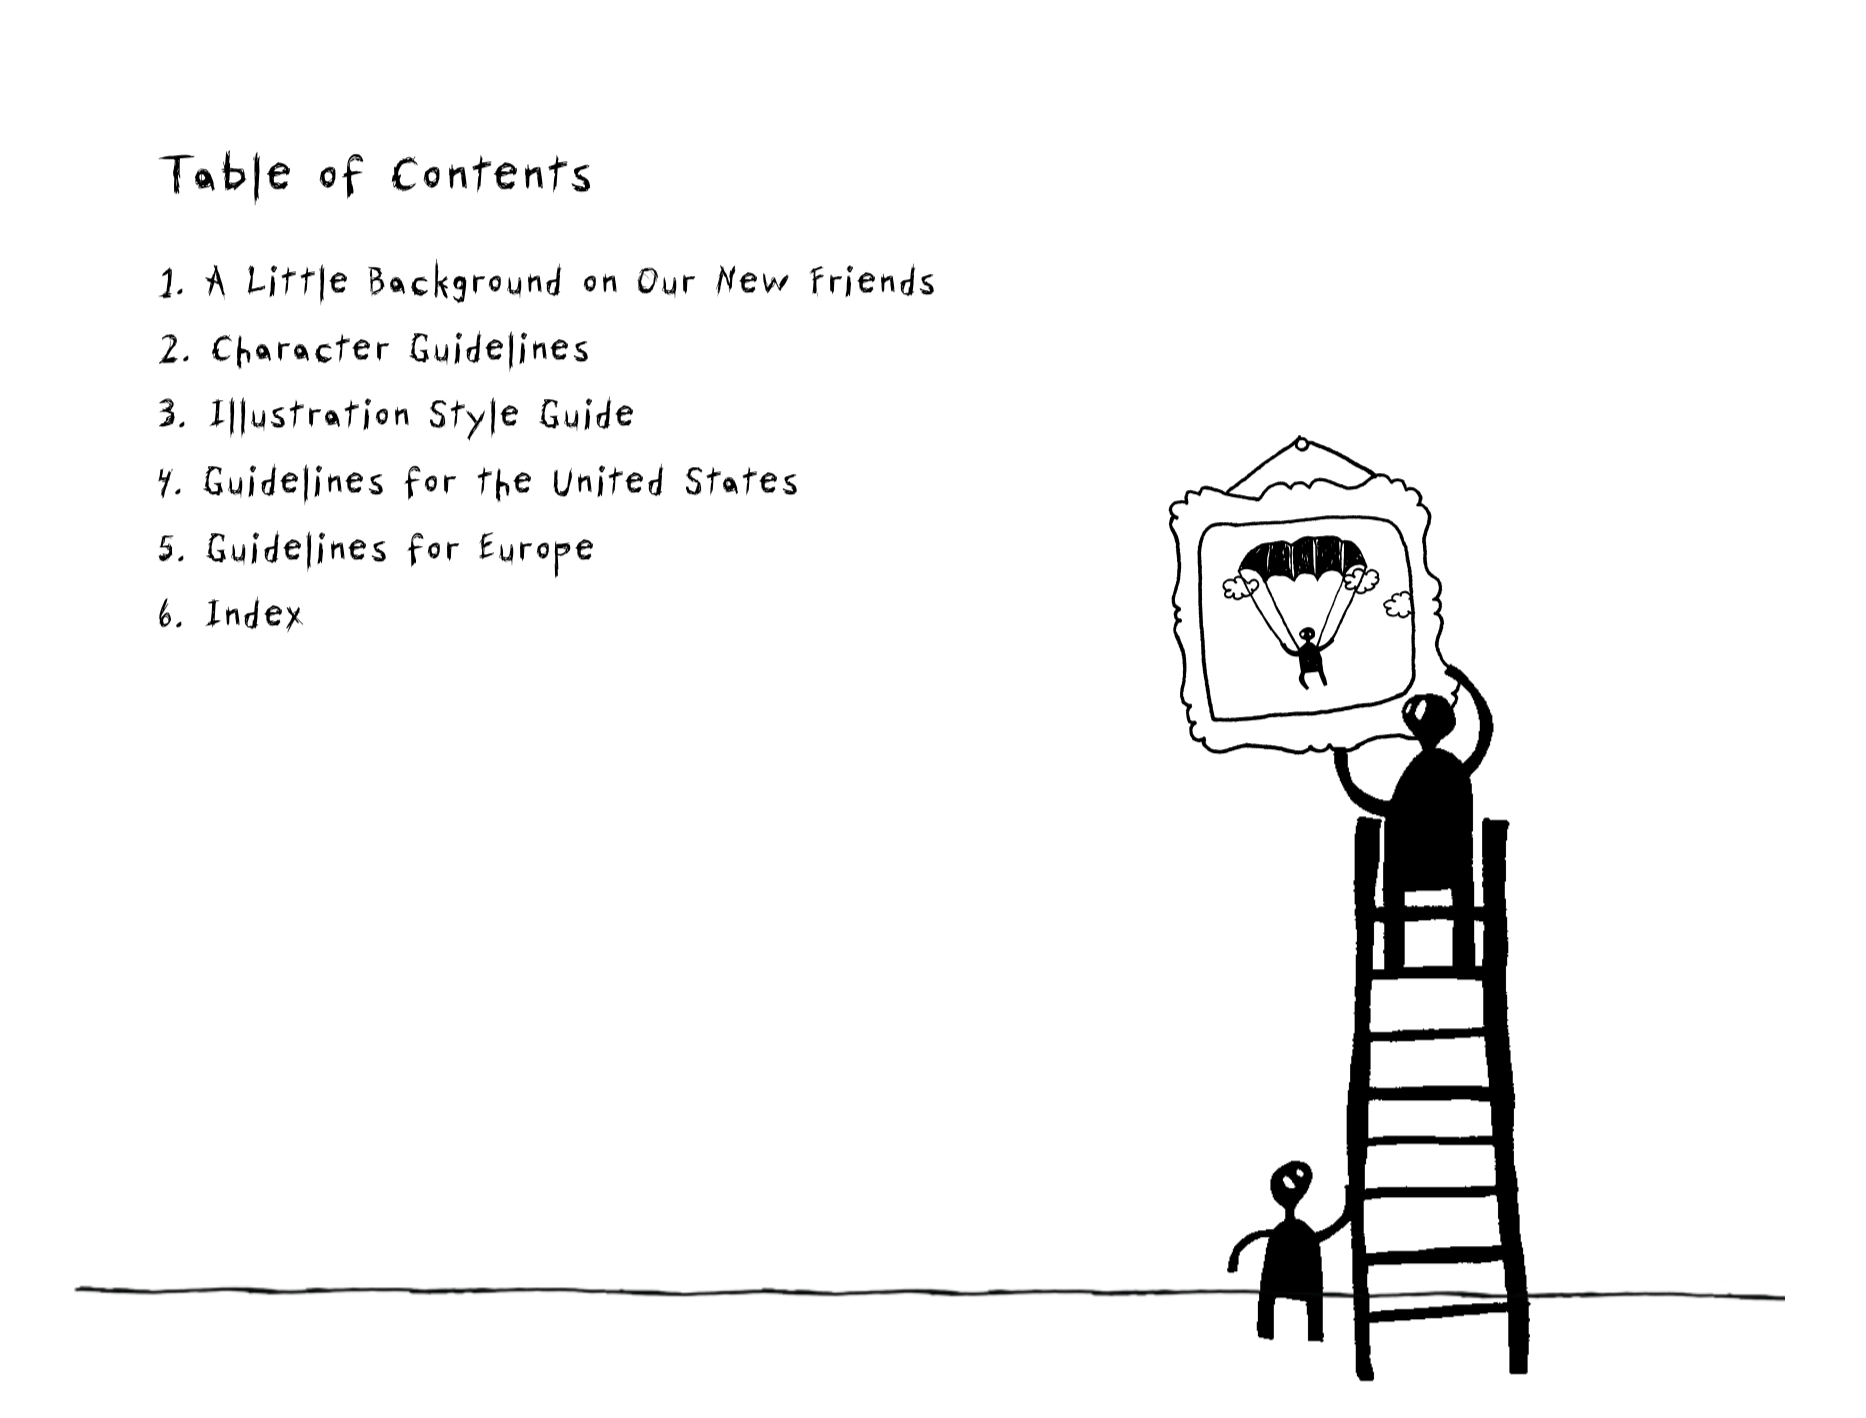 Table of Contents
1. A Little Background on Our New Friends
2. Character Guidelines
3. Illustration Style Guide
4. Guidelines for the United States
5. Guidelines for Europe
6. Index